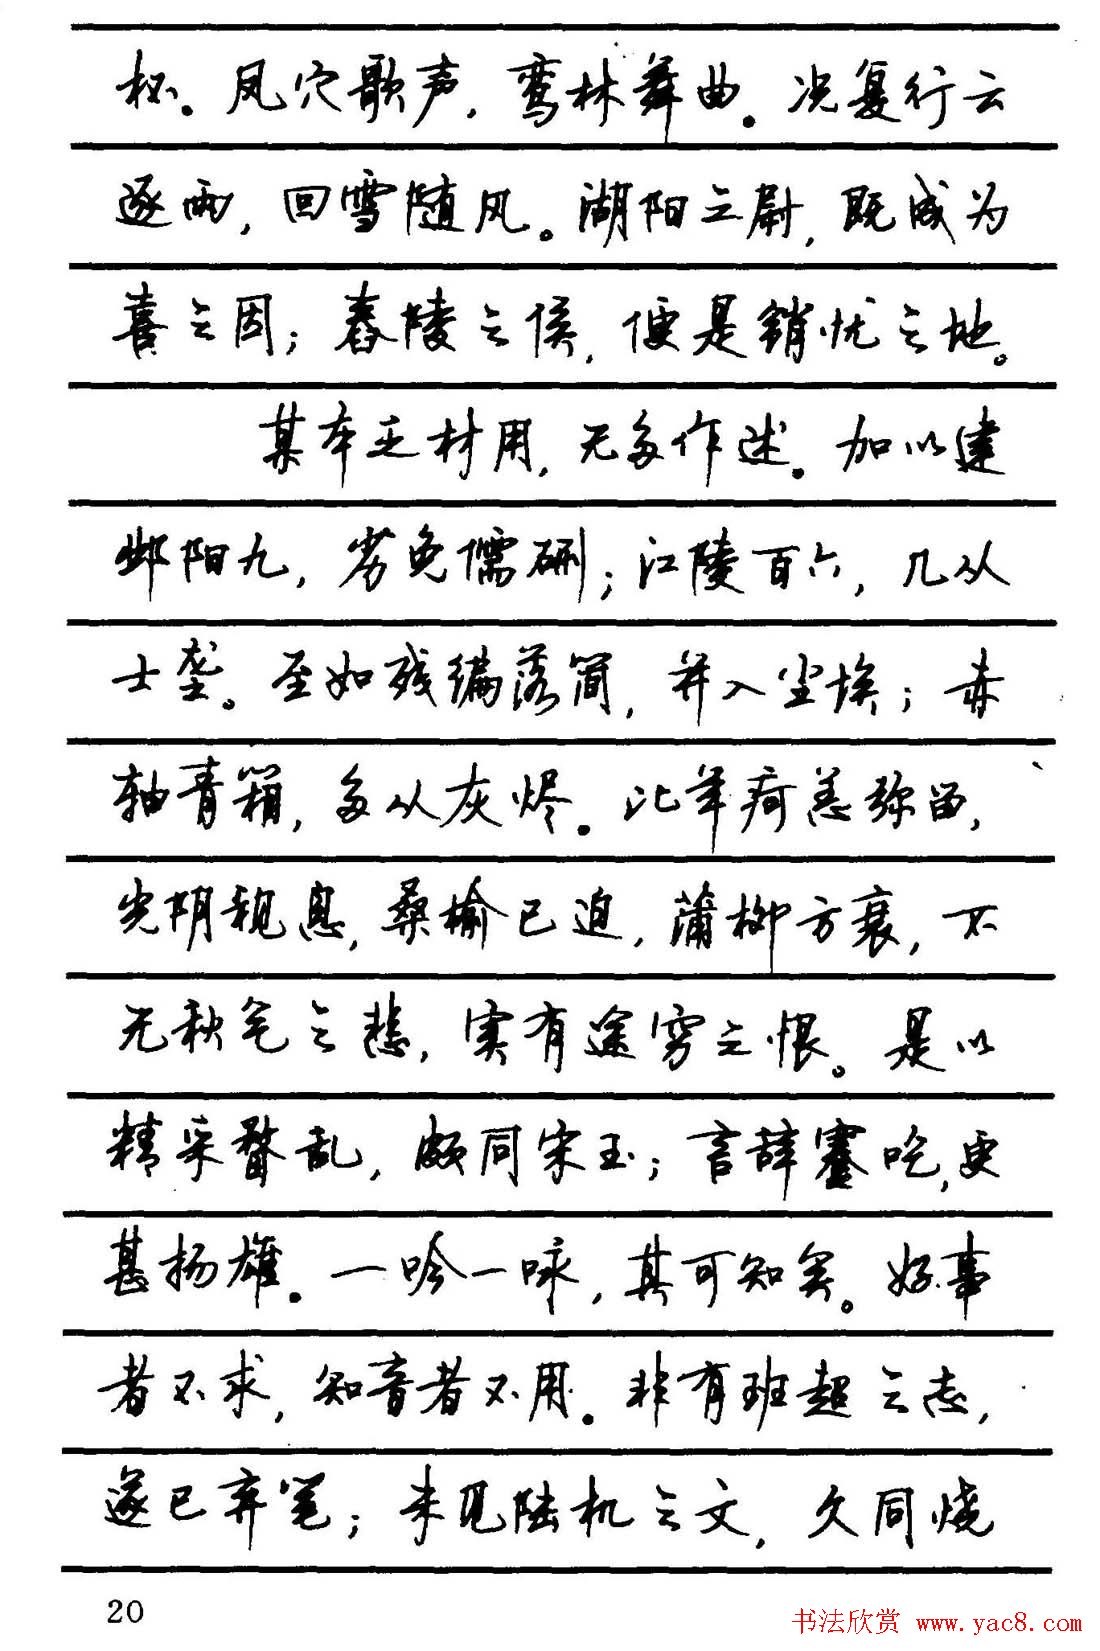 杯。凤穴歌声，鸾林舞曲。况复行云
逐雨，回雪随风。湖阳之尉，既成为
喜之因；舂陵之侯，便是销忧之地。
某本乏材用，无多作述。加以建
邺阳九，劣免儒硎；江陵百六，几从
士垄。至如残编落简，并入尘埃；赤
轴青箱，多从灰烬。比年疴恙弥留，
光阴视息，桑榆已迫，蒲柳方衰，不
无秋气之悲，实有途穷之恨。是以
精采瞀乱，颇同宋玉；言辞蹇吃，更
甚扬雄。一吟一咏，其可知矣。好事
者不求，知音者不用。非有班超之志，
遂已弃笔；未见陆机之文，久同烧
20
书法欣赏 www.yac8.com